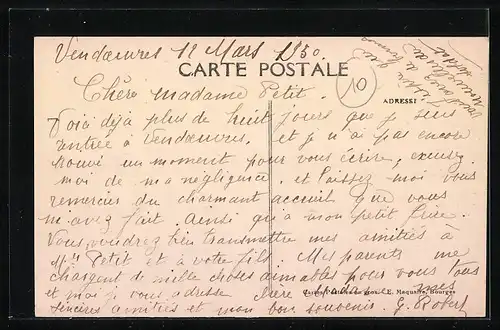 Vendœuvres 12 Mars 1930
CARTE POSTALE
10
ADRESSE
Chère Madame Petit.
Voici déjà plus de huit jours que je suis
rentrée à Vendœuvres, et je n'ai pas encore
trouvé un moment pour vous écrire, excusez
moi de ma négligence. et laissez moi vous
remercier du charmant accueil que vous
m'avez fait. Ainsi qu'à mon petit frère.
Vous voudrez bien transmettre mes amitiés à
Mr Petit et à votre fils. Mes parents me
chargent de mille choses aimables pour vous tous
et moi je vous adresse chère Madame mes
E. Maquaire, Bourges
sincères amitiés et mon bon souvenir. G. Robert